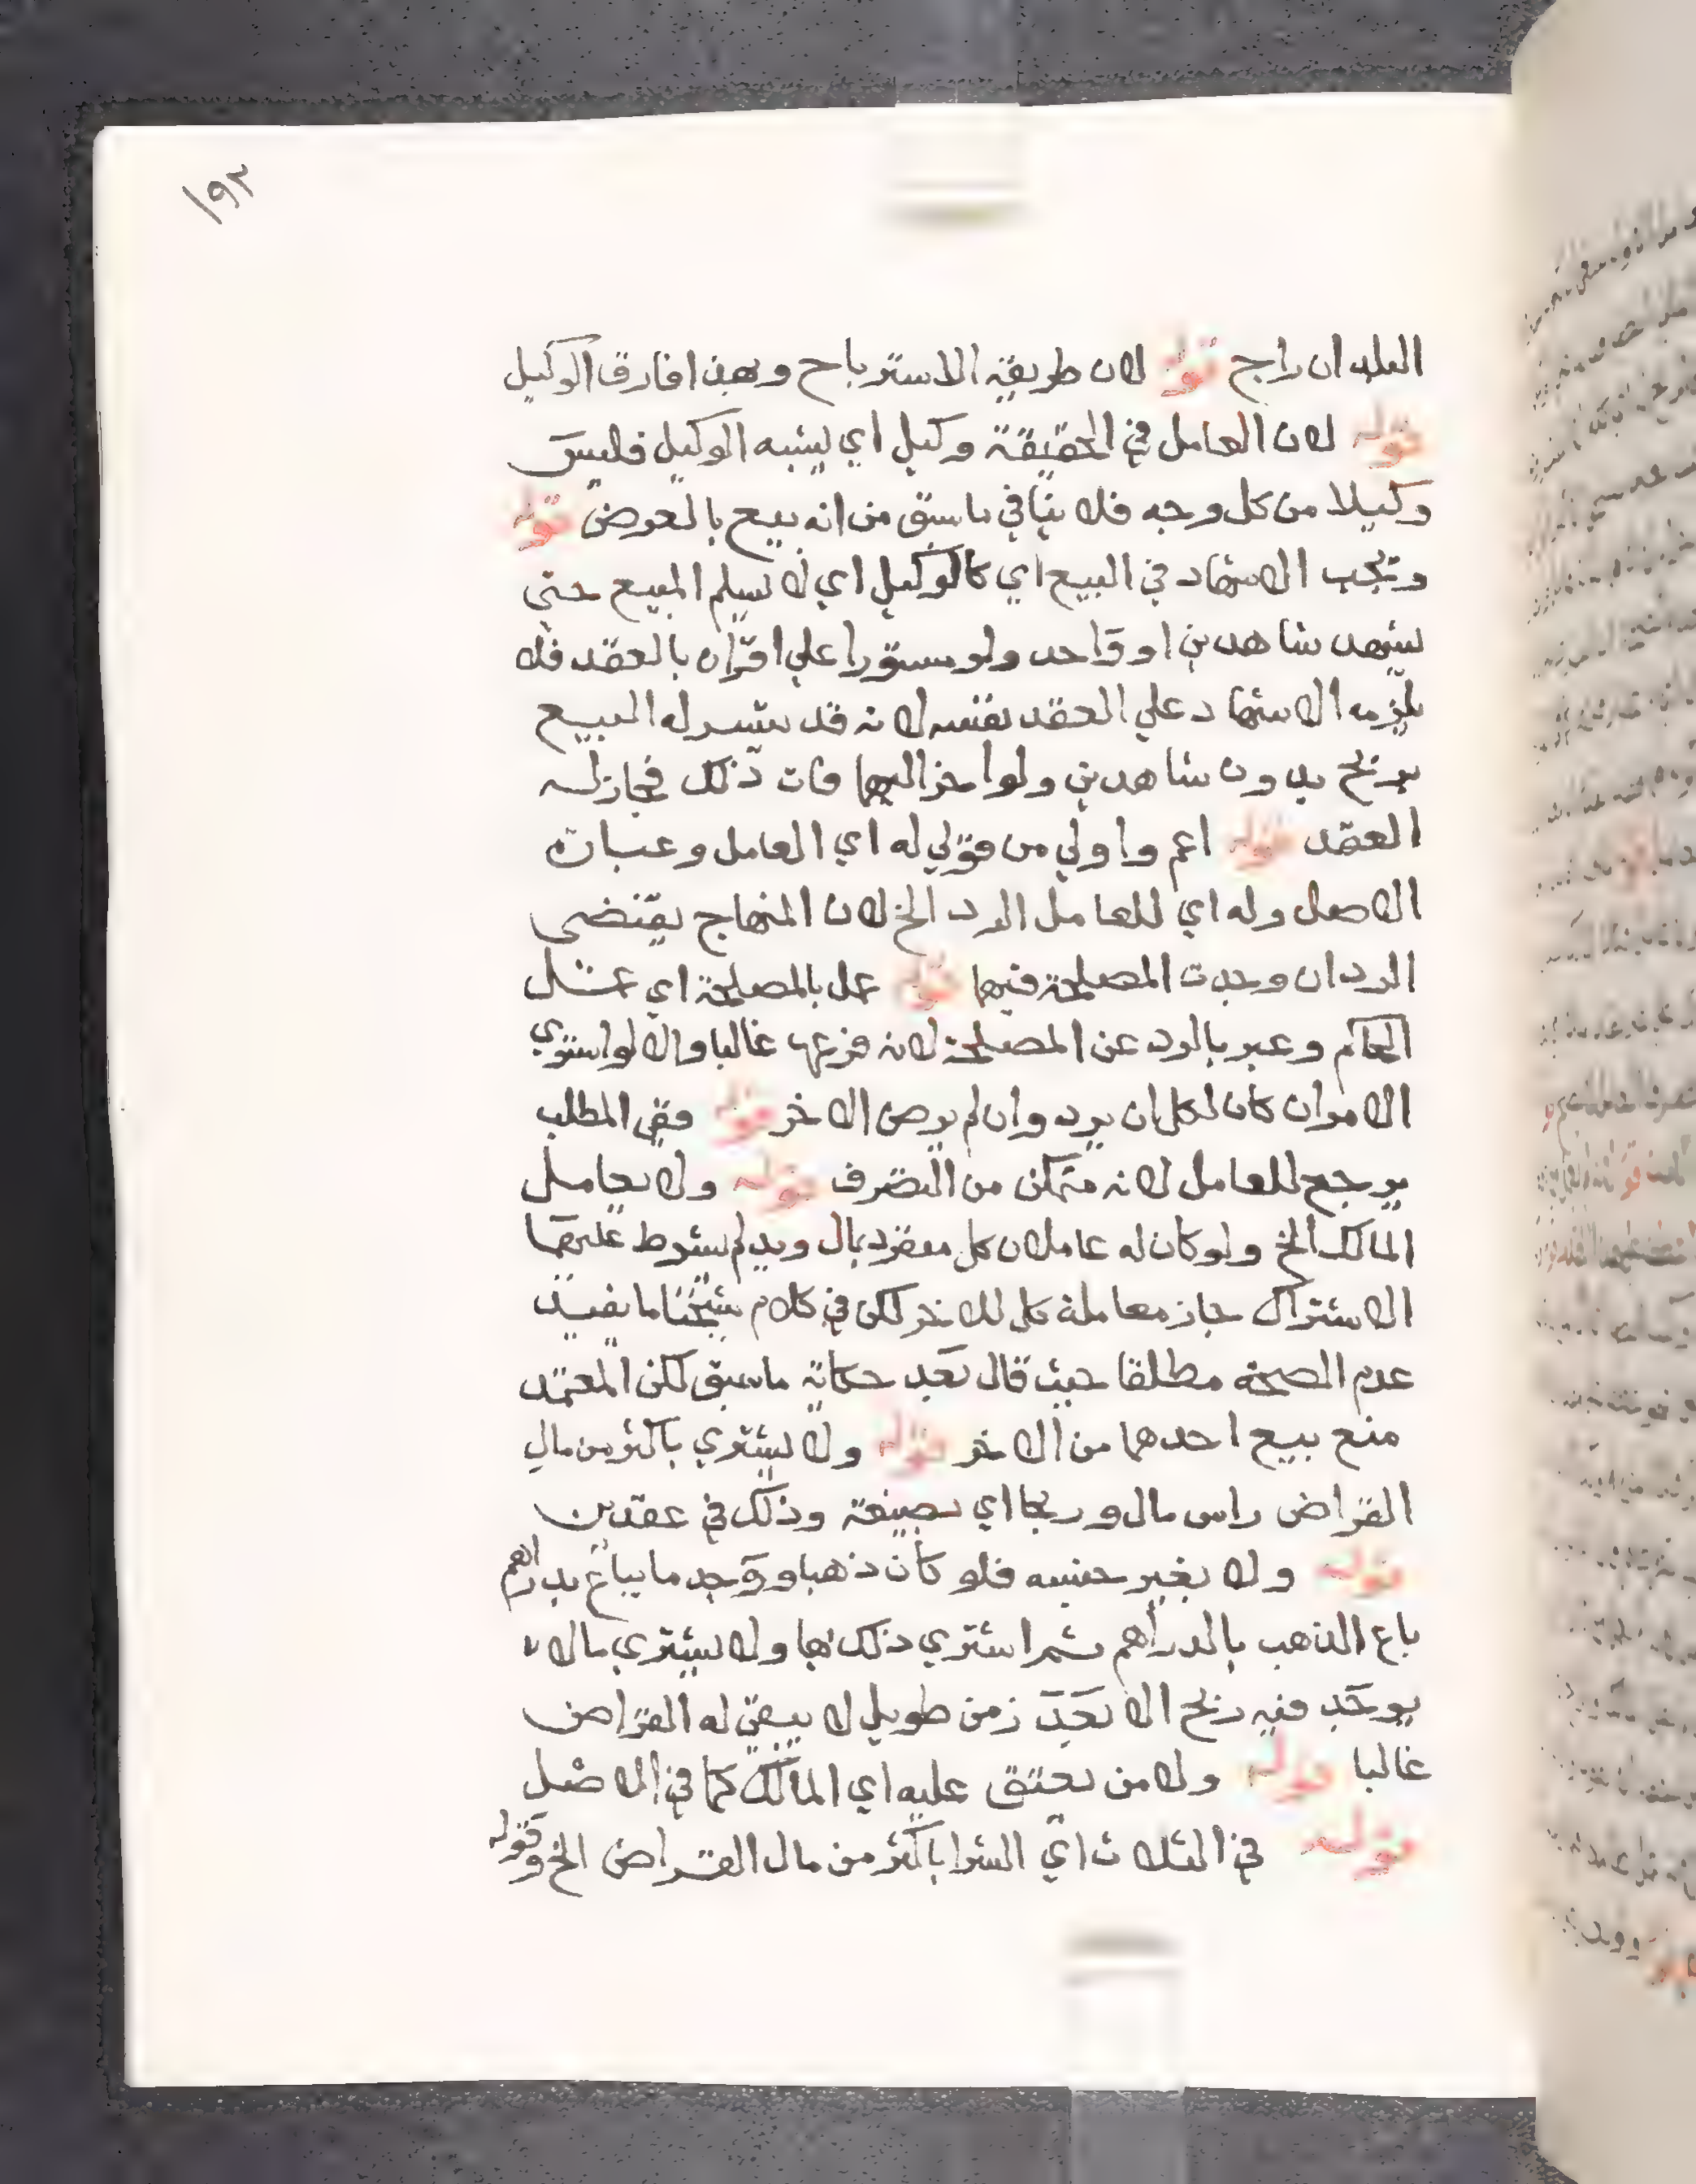 ١٩٢
البلد ان راج قوله لان طريقة الاسترباح وبهذا فارق الوكيل
قوله لان العامل في الحقيقة وكيل اي يشبه الوكيل فليس
وكيلا من كل وجه فلا ينافي ما سبق من انه يبيع بالعرض قوله
وتجب الاشهاد في البيع اي كالوكيل اي لا يسلم المبيع حتى
يشهد شاهدين او واحد ولو مستورا علي اقراره بالعقد فلا
يلزمه الاشهاد علي العقد نفسه لانه قد يتيسر له المبيع
بربح بدون شاهدين ولو اخر اليهما فات ذلك فجاز له
العقد قوله اعم واولي من قولي له اي العامل وعبارة
الاصل وله اي للعامل الرد الخ لان المنهاج يقتضي
الرد ان وجدت المصلحة فيها قوله عمل بالمصلحة اي عمل
الحاكم وعبر بالرد عن المصلحة لانه فرعها غالبا والا لو استوي
الامران كان لكل ان يرد وان لم يرض الاخر قوله وفي المطلب
يرجح للعامل لانه متمكن من التصرف قوله ولا يعامل
المالك الخ ولو كان له عاملان كل منفرد بمال ولم يشرط عليهما
الاشتراك جاز معاملة كل للاخر لكن في كلام شيخنا ما يفيد
عدم الصحة مطلقا حيث قال بعد حكاية ما سبق لكن المعتمد
منع بيع احدهما من الاخر قوله ولا يشتري باكثر من مال
القراض راس مال وربحا اي بصيغة وذلك في عقدين
قوله ولا بغير جنسه فلو كان ذهبا ووجد ما يباع بدراهم
باع الذهب بالدراهم ثم اشتري ذلك بها ولا يشتري ما لا
يوجد فيه ربح الا بعد زمن طويل لا يبقي له القراض
غالبا قوله ولا من يعتق عليه اي المالك كما في الاصل
قوله في الثلاث اي الشرا باكثر من مال القراض الخ وقوله